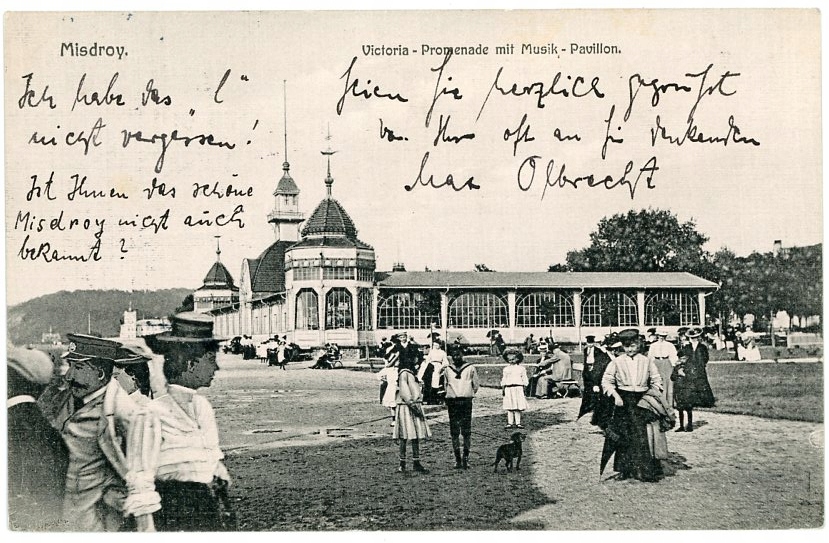 Misdroy.
Victoria - Promenade mit Musik - Pavillon.
Ich habe das „l“
nicht vergessen!
Ist Ihnen das schöne
Misdroy nicht auch
bekannt?
Seien Sie herzlich gegrüßt
von Ihrem oft an Sie denkenden
Max Olbrecht